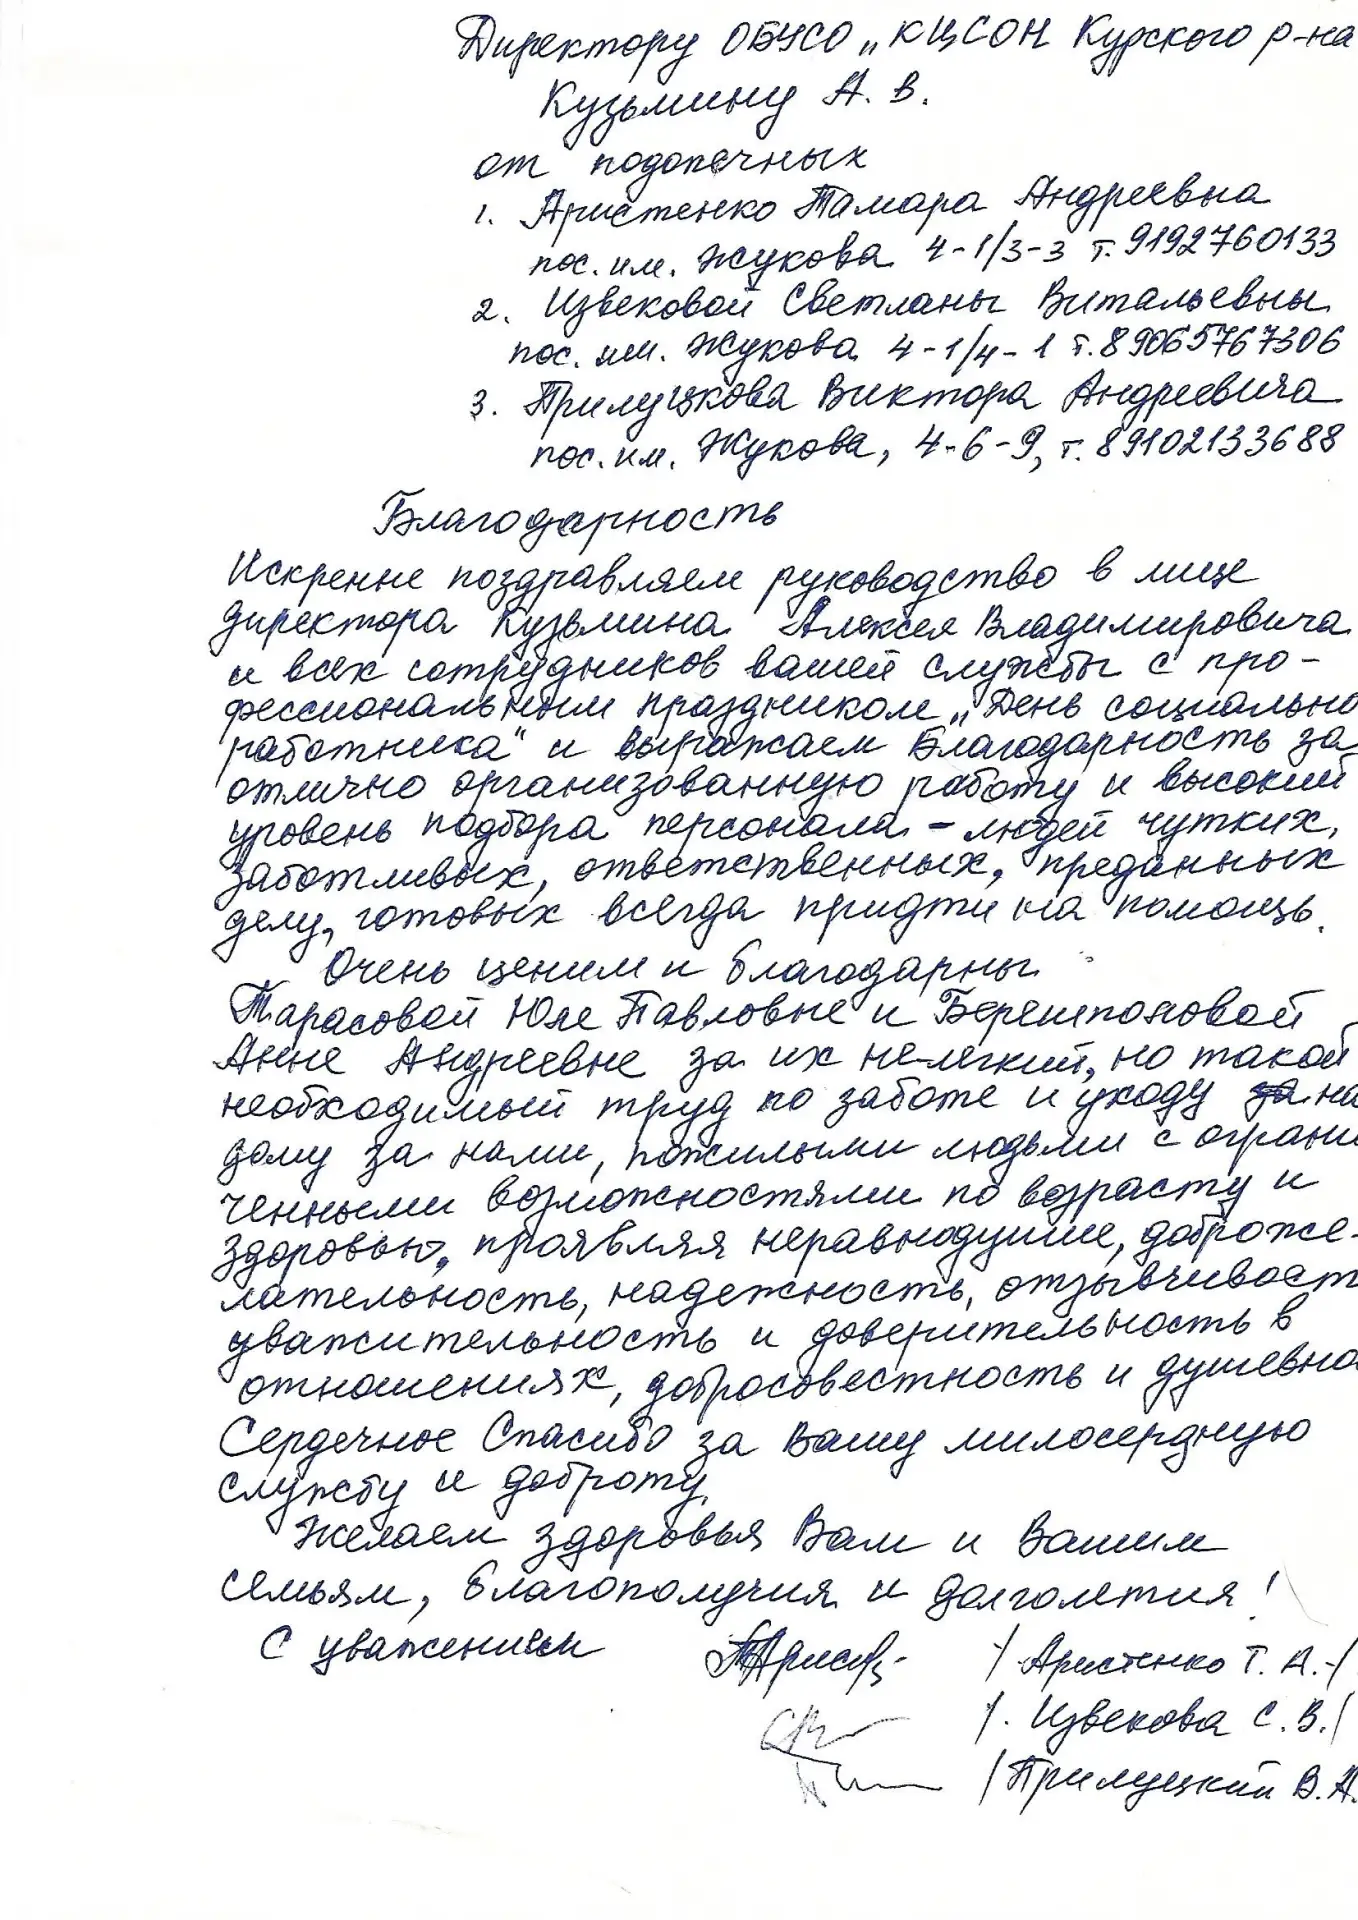 Директору ОБУСО „КЦСОН Курского р-на
Кузьмину А. В.
от подопечных
1. Аристенко Тамара Андреевна
пос. им. Жукова 4-1/3-3 т. 9192760133
2. Извековой Светланы Витальевны
пос. им. Жукова 4-1/4-1 т. 89065767306
3. Прилуцкова Виктора Андреевича
пос. им. Жукова, 4-6-9, т. 89102133688
Благодарность
Искренне поздравляем руководство в лице
директора Кузьмина Алексея Владимировича
и всех сотрудников вашей службы с про-
фессиональным праздником „День социально
работника" и выражаем Благодарность за
отлично организованную работу и высокий
уровень подбора персонала - людей чутких,
заботливых, ответственных, преданных
делу, готовых всегда придти на помощь.
Очень ценим и благодарны
Тарасовой Юле Павловне и
Анне Андреевне за их не-легкий, но такой
необходимый труд по заботе и уходу за на
дому за нами, пожилыми людьми с ограни
ченными возможностями по возрасту и
здоровью, проявляя неравнодушие, доброже-
лательность, надежность, отзывчивост
уважительность и доверительность в
отношениях, добросовестность и душевно
Сердечное Спасибо за Вашу милосердную
службу и доброту.
Желаем здоровья Вам и Вашим
семьям, благополучия и долголетия!
С уважением /Аристенко Т. А./
/. Извекова С. В./
/Прилуцкий В. А.